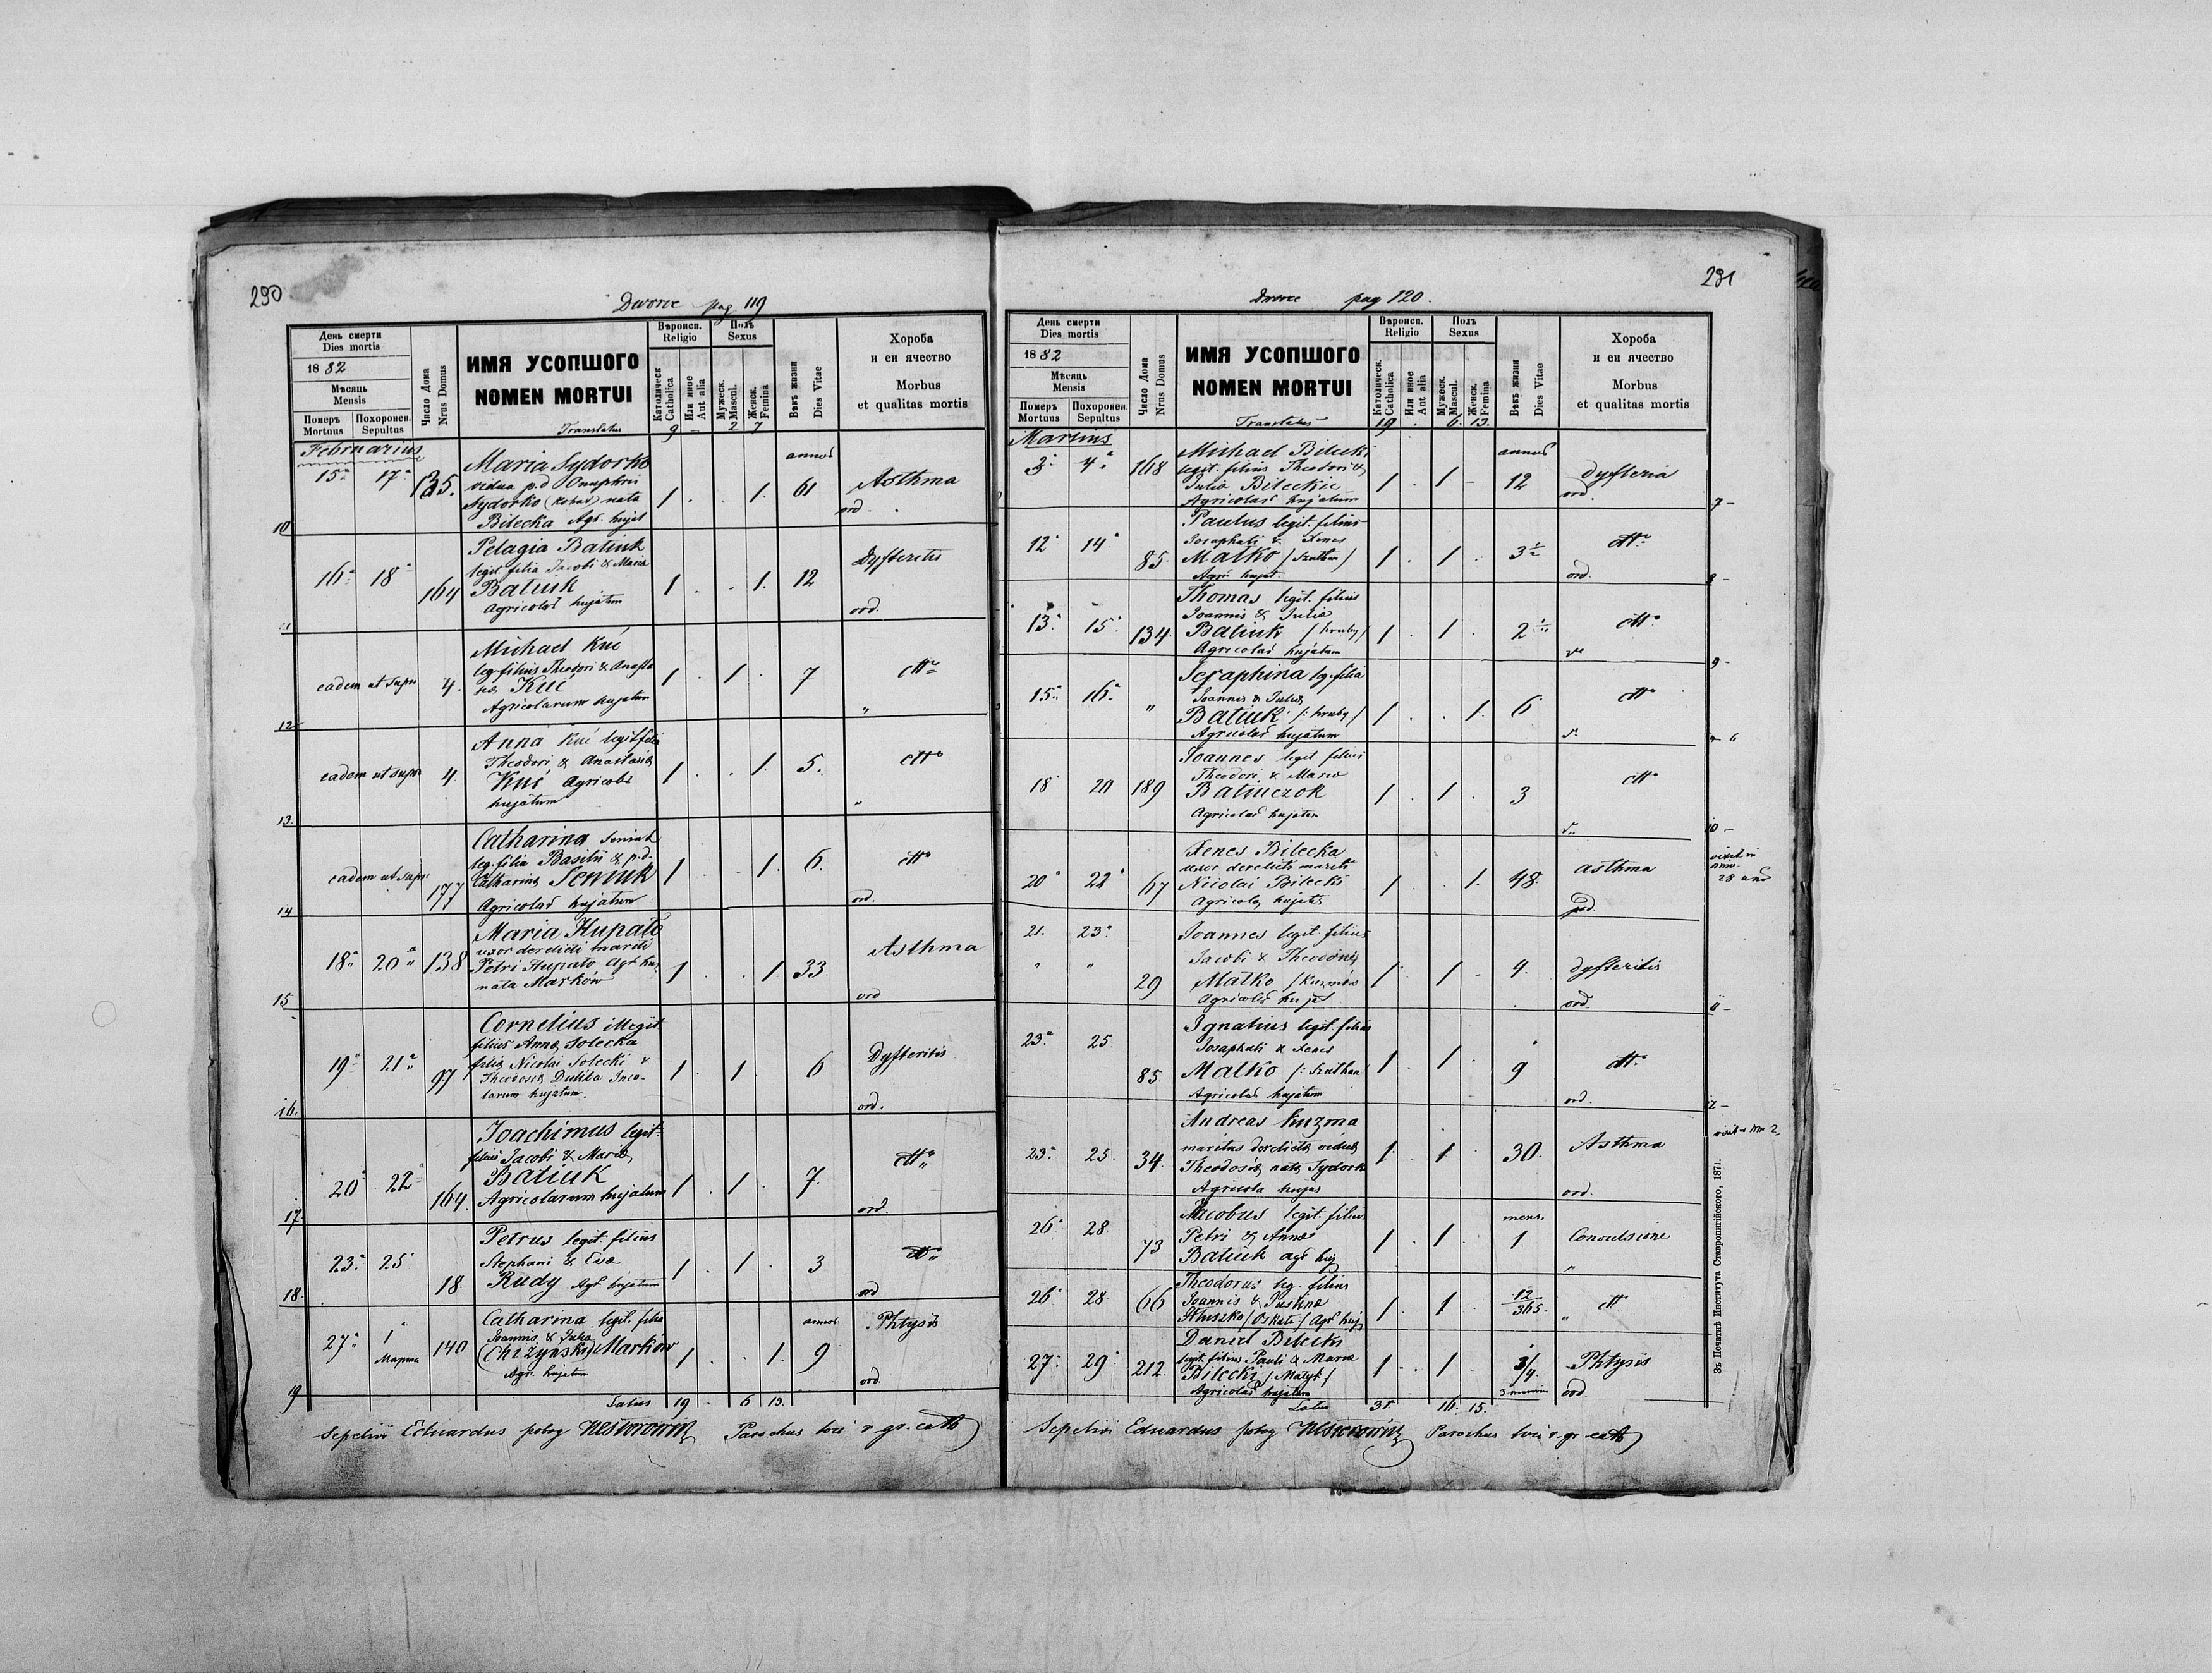 290
Dworce pag 119
День смерти
Dies mortis
1882
Мѣсяць
Mensis
Померъ
Mortuus
Похоронен.
Sepultus
Число Дома
Nrus Domus
ИМЯ УСОПШОГО
NOMEN MORTUI
Вѣроисп.
Religio
Католическ.
Catholica
Или иное
Aut alia
Полъ
Sexus
Мужеск.
Mascul.
Женск.
Femina
Вѣкъ жизни
Dies Vitae
Хороба
и еи ячество
Morbus
et qualitas mortis
Translatus 9 - 2 7
Februarius
annos
15 17 135. Maria Sydorko
vidua p.d Onuphrii
Sydorko nata
Bilecka Agr. hujat
1 . . 1. 61 Asthma
ord.
10
16 18 164 Pelagia Batiuk
legit. filia Jacobi & Maria
Batiuk
Agricolar hujatum
1 . . 1. 12 Dyfteritis
ord.
eadem ut supra 4. Michael Kuć
leg. filius Theodori & Anasta
Kuć
Agricolarum hujatum
1 . 1 . 7 dtto
"
12
eadem ut supra 4 Anna Kuć legit filia
Theodori & Anastasia
Kuć Agricolar
hujatum
1 . . 1. 5. dtto
"
13.
eadem ut supra 177 Catharina Seniuk
leg. filia Basilii & p.d.
Catharina Seniuk
Agricolar hujatum
1 . . 1. 6. dtto
ord.
14
18 20 138 Maria Hupało
uxor derelicti mariti
Petri Hupało Agr. huj
nata Marków
1 . . 1 33. Asthma
ord
15
19 21 97 Cornelius illegit
filius Anna Solecka
filia Nicolai Solecki &
Theodosia Duliba Inco-
larum hujatum.
1 . 1 . 6 Dyfteritis
ord.
16.
20 22 164. Joachimus legit.
filius Jacobi & Maria
Batiuk
Agricolarum hujatum
1 . 1 . 7. dtto
ord.
17.
23. 25 18 Petrus legit. filius
Stephani & Eva
Rudy Agr hujatum
1 . 1 . 3 dtto
ord
18.
27 1 140 Catharina legit. filia
Joannis & Julia
(Chiżyński) Marków
Agr. hujatum
1 . . 1. annos 9 Phtysis
ord.
19
Latus 19 . 6 13.
Sepelivi Eduardus Parochus loci r. gr. cath
231
Dworce pag 120.
День смерти
Dies mortis
1882
Мѣсяць
Mensis
Померъ
Mortuus
Похоронен.
Sepultus
Число Дома
Nrus Domus
ИМЯ УСОПШОГО
NOMEN MORTUI
Вѣроисп.
Religio
Католическ.
Catholica
Или иное
Aut alia
Полъ
Sexus
Мужеск.
Mascul.
Женск.
Femina
Вѣкъ жизни
Dies Vitae
Хороба
и еи ячество
Morbus
et qualitas mortis
Translatus 19 . 6. 13.
Martius
annos
3 4 168 Michael Bilecki
legit. filius Theodori &
Julia Bileckie
Agricolar hujatum
1 . 1 - 12 Dyfteria
ord.
7 -
12 14 85. Paulus legit. filius
Josaphati & Xenes
Matko
Agri hujat.
1 . 1 . 3 1/2 dtto
ord.
8 -
13. 15 134. Thomas legit. filius
Joannis & Julia
Batiuk /hruby/
Agricolar hujatum
1 . 1 . 2 dtto
9 -
15 16. " Seraphina leg. filia
Joannis & Julia
Batiuk /: hruby/
Agricolar hujatum
1 . . 1. 6 dtto
18 20 189 Joannes legit. filius
Theodori & Maria
Batiuczok
Agricolar hujatum
1 . 1 . 3 dtto
10 -
20 22 67 Xenes Bilecka
uxor derelicti mariti
Nicolai Bilecki
Agricola hujatis
1 . . 1. 48. asthma
ord.
21. 23. Joannes legit. filius
" " 29 Jacobi & Theodosia
Matko
Agricolar hujat
1 . 1 . 4. dyfteritis
ord.
11 -
23. 25 85. Ignatius legit. filius
Josaphati & Xenes
Matko
Agricolar hujatum
1 . 1 . 9 dtto
ord.
23. 25. 34. Andreas Kuzma
maritus derelicta vidua
Theodosia nata Sydorko
Agricola hujas
1 . 1 . 30. Asthma
ord.
26 28. 73 Jacobus legit. filius
Petri & Anna
Batiuk agr huj
1 . 1 . mens. 1. Convulsione
"
26 28 66 Theodorus leg. filius
Joannis & Paskna
Agr huj
1 . 1 . 12/365. " dtto
27. 29 212. Daniel Bilecki
legit. filius Pauli & Maria
Bilecki
Agricolar hujatum
1 . 1 . 3/4. Phtysis
ord.
Latus 31. 16. 15.
Sepelivi Eduardus Parochus loci r. gr cath
Зъ Печатнѣ Института Ставропигійского, 1871.